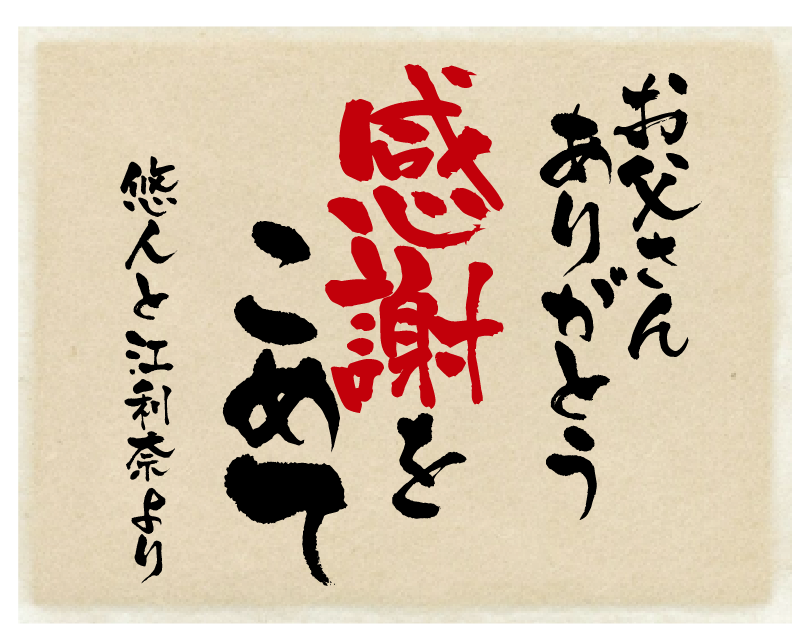 お父さん
ありがとう
感謝を
こめて
悠人と江利奈より